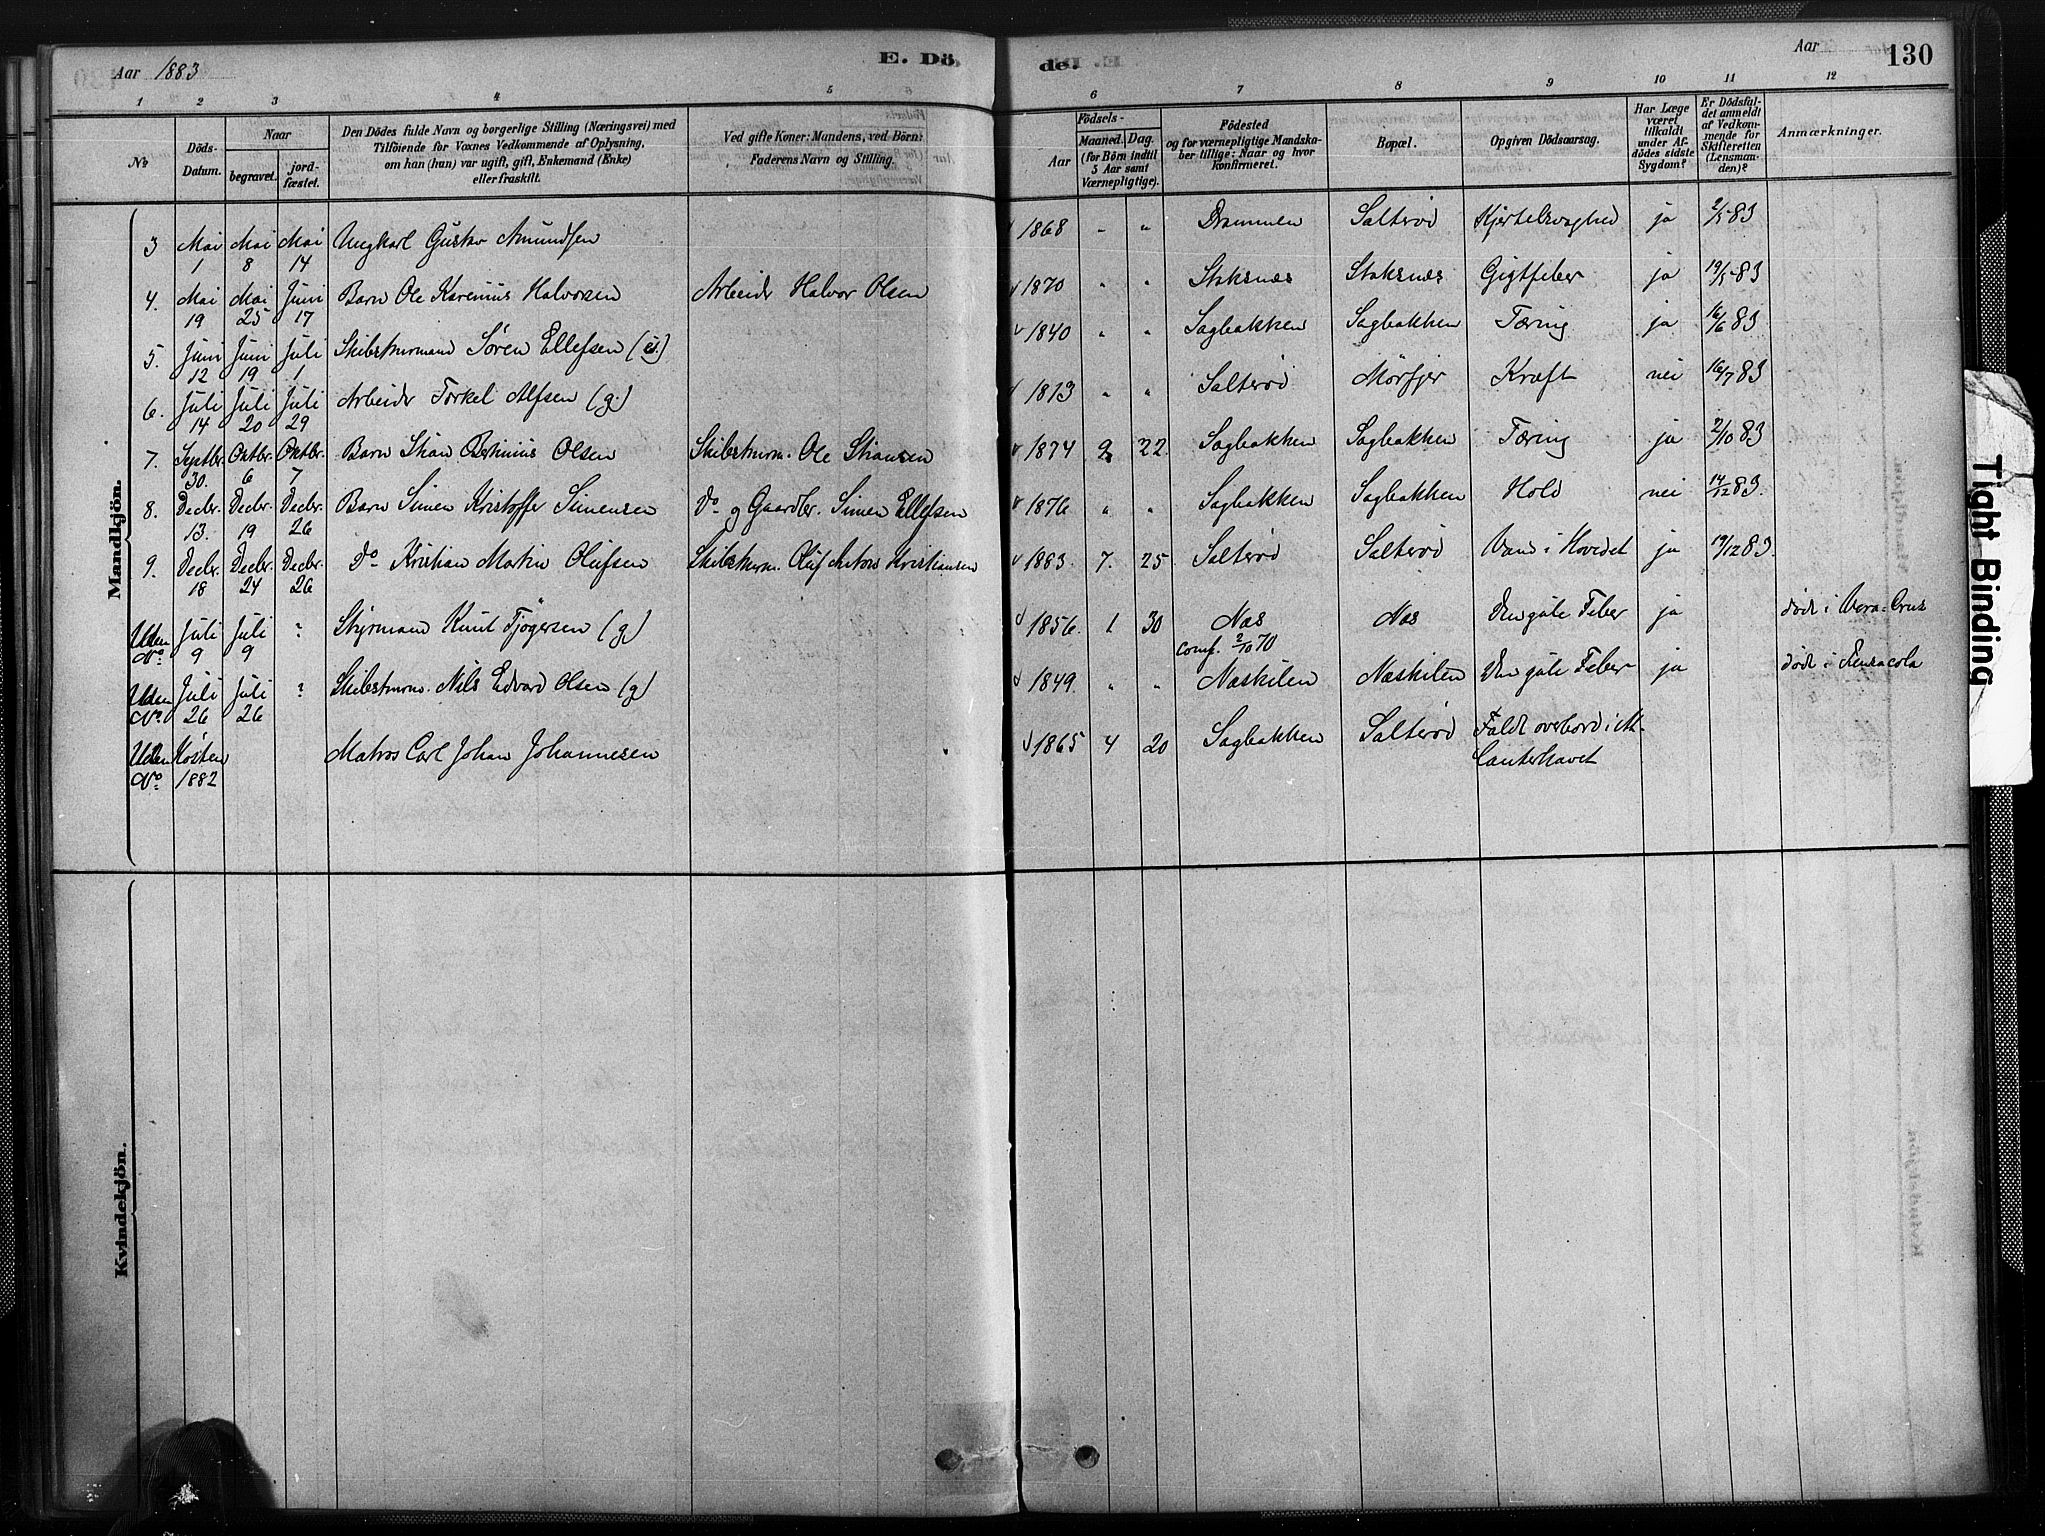 Aar 1883
E. Döde.
Aar
130
1 2 3 4 5 6 7 8 9 10 11 12
No
Döds-Datum.
Naar
begravet.
jordfæstet.
Den Dödes fulde Navn og borgerlige Stilling (Næringsvei) med
Tilföiende for Voxnes Vedkommende af Oplysning,
om han (hun) var ugift, gift, Enkemand (Enke)
eller fraskilt.
Ved gifte Koner: Mandens, ved Börn:
Faderens Navn og Stilling.
Födsels-
Aar
Maaned.
Dag.
(for Börn indtil
5 Aar samt
Værnepligtige).
Födested
og for værnepligtige Mandska-
ber tillige: Naar og hvor
konfirmeret.
Bopæl.
Opgiven Dödsaarsag.
Har Læge
været
tilkaldt
under Af-
dödes sidste
Sygdom?
Er Dödsfal-
det anmeldt
af Vedkom-
mende for
Skifteretten
(Lensman-
den)?
Anmærkninger.
Mandkjön.
3 Mai 1 Mai 8 Mai 14 Ungkarl Gustav Amundsen 1868 " " Drammen Salterød Kjertelsvaghed ja 2/5 83
4. Mai 19 Mai 25 Juni 17 Barn Ole Karenius Halvorsen Arbeider Halvor Olsen 1870 " " Staksnæs Staksnæs Gigtfeber ja 19/5 83
5. Juni 12 Juni 19 Juli 1 Skibstmrmand Søren Ellefsen 1840 " " Sagbakken Sagbakken Tæring ja 16/6 83
6. Juli 14 Juli 20 Juli 29 Arbeider Torkel Alfsen (g.) 1813 " " Salterød Mørfjer Kræft nei 16/7 83
7. Septbr. 30. Oktbr. 6 Oktbr. 7 Barn Stian Olsen Skibstmrm. Ole Stiansen 1874 9 22 Sagbakken Sagbakken Tæring ja 2/10 83
8. Decbr. 13. Decbr. 19 Decbr. 26 Barn Simen Kristoffer Simensen Do og Gaardbr. Simen Ellefsen 1876 " " Sagbakken Sagbakken Hold nei 14/12 83.
9. Decbr. 18 Decbr. 24 Decbr. 26 Do Kristian Martin Olufsen Skibstmrm. Oluf Kristiansen 1883 7. 25 Salterød Salterød Vand i Hovedet ja 19/12 83.
Uden No. Juli 9 Juli 9 ? Styrmand Knut Tjøgersen (g) 1856. 1 30 Næs Næs Den gule Feber ja død i Vera-Cruz
conf. 2/10 70
Uden No. Juli 26 Juli 26 ? Skibstmrm. Nils Edvard Olsen (g) 1849. " " Næskilen Næskilen Den gule Feber ja død i Pensacola
Uden No. Høsten 1882 Matros Carl Johan Johannesen 1865 4 20 Sagbakken Salterød Faldt overbord i At-
lanterhavet
Kvindekjön.
Tight Binding